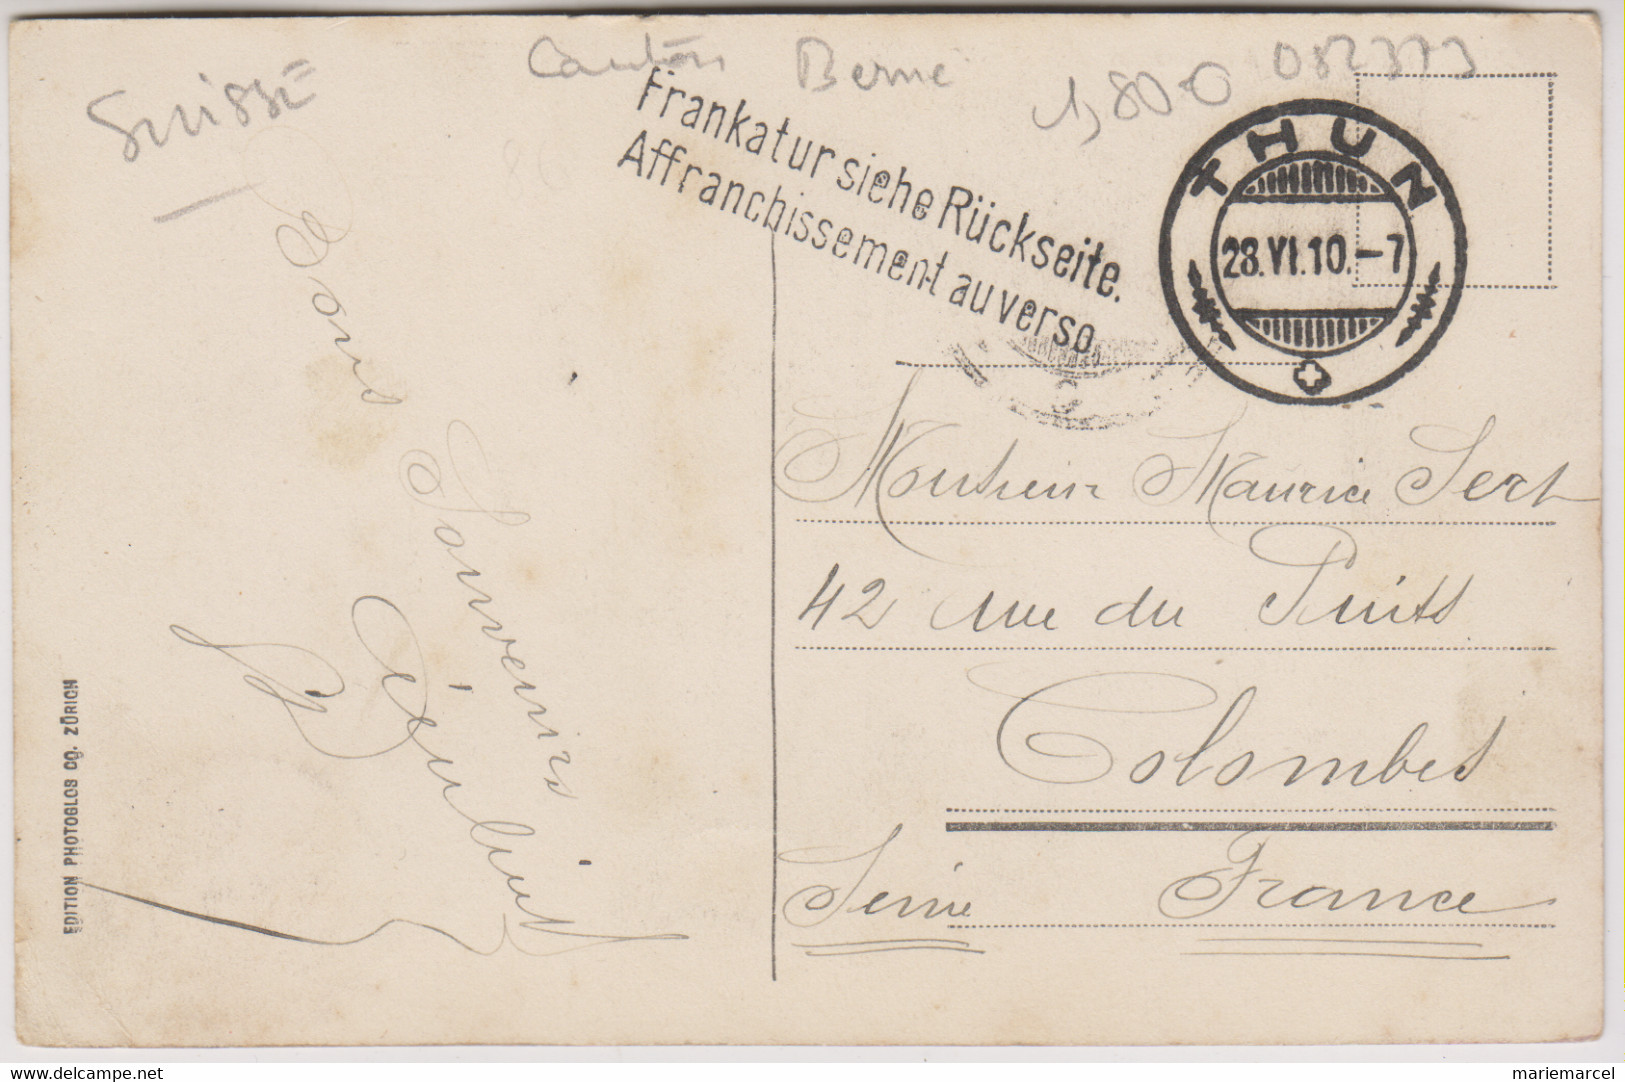 Suisse
Canton Berne
1,80
082373
Frankatur siehe Rückseite.
Affranchissement au verso
THUN
28.VI.10.-7
Bons Souvenirs
EDITION PHOTOGLOB Co. ZÜRICH
Monsieur Maurice Sert
42 rue du Puits
Colombes
Seine France
www.delcampe.net
mariemarcel